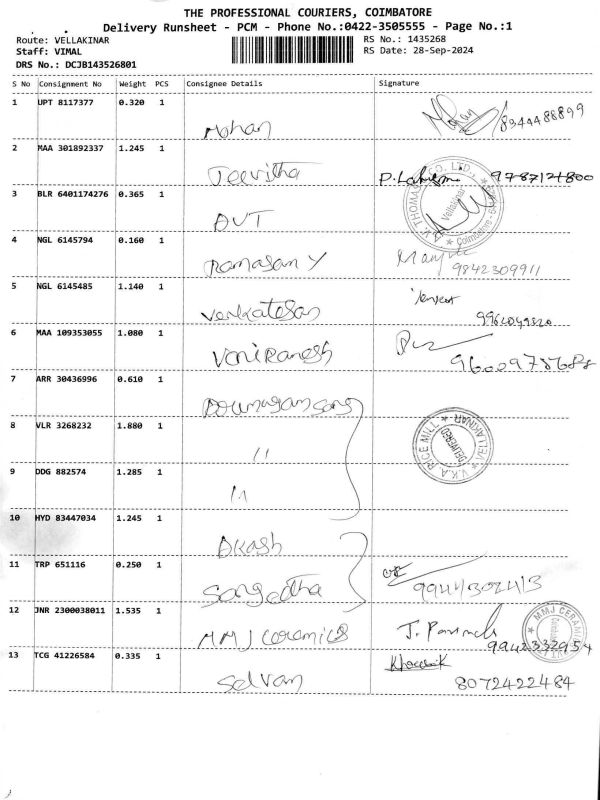 THE PROFESSIONAL COURIERS, COIMBATORE
Delivery Runsheet - PCM - Phone No.:0422-3505555 - Page No.:1
Route: VELLAKINAR RS No.: 1435268
Staff: VIMAL RS Date: 28-Sep-2024
DRS No.: DCJB143526801
S No Consignment No Weight PCS Consignee Details Signature
1 UPT 8117377 0.320 1 Mohan 8344488899
2 MAA 301892337 1.245 1 Jeevitha 9787121800
3 BLR 6401174276 0.365 1 Vellakinar
4 NGL 6145794 0.160 1 9842309911
5 NGL 6145485 1.140 1 Venkatesan
6 MAA 109353055 1.080 1
7 ARR 30436996 0.610 1
8 VLR 3268232 1.880 1 11 V.K.A. RICE MILL VELLAKINAR DELIVERED
9 DDG 882574 1.285 1 11
10 HYD 83447034 1.245 1 Akash
11 TRP 651116 0.250 1 Sangeetha 9944302413
12 JNR 2300038011 1.535 1 MMJ Ceramics 9942332954 MMJ CERAMI
13 TCG 41226584 0.335 1 Selvan 8072422484